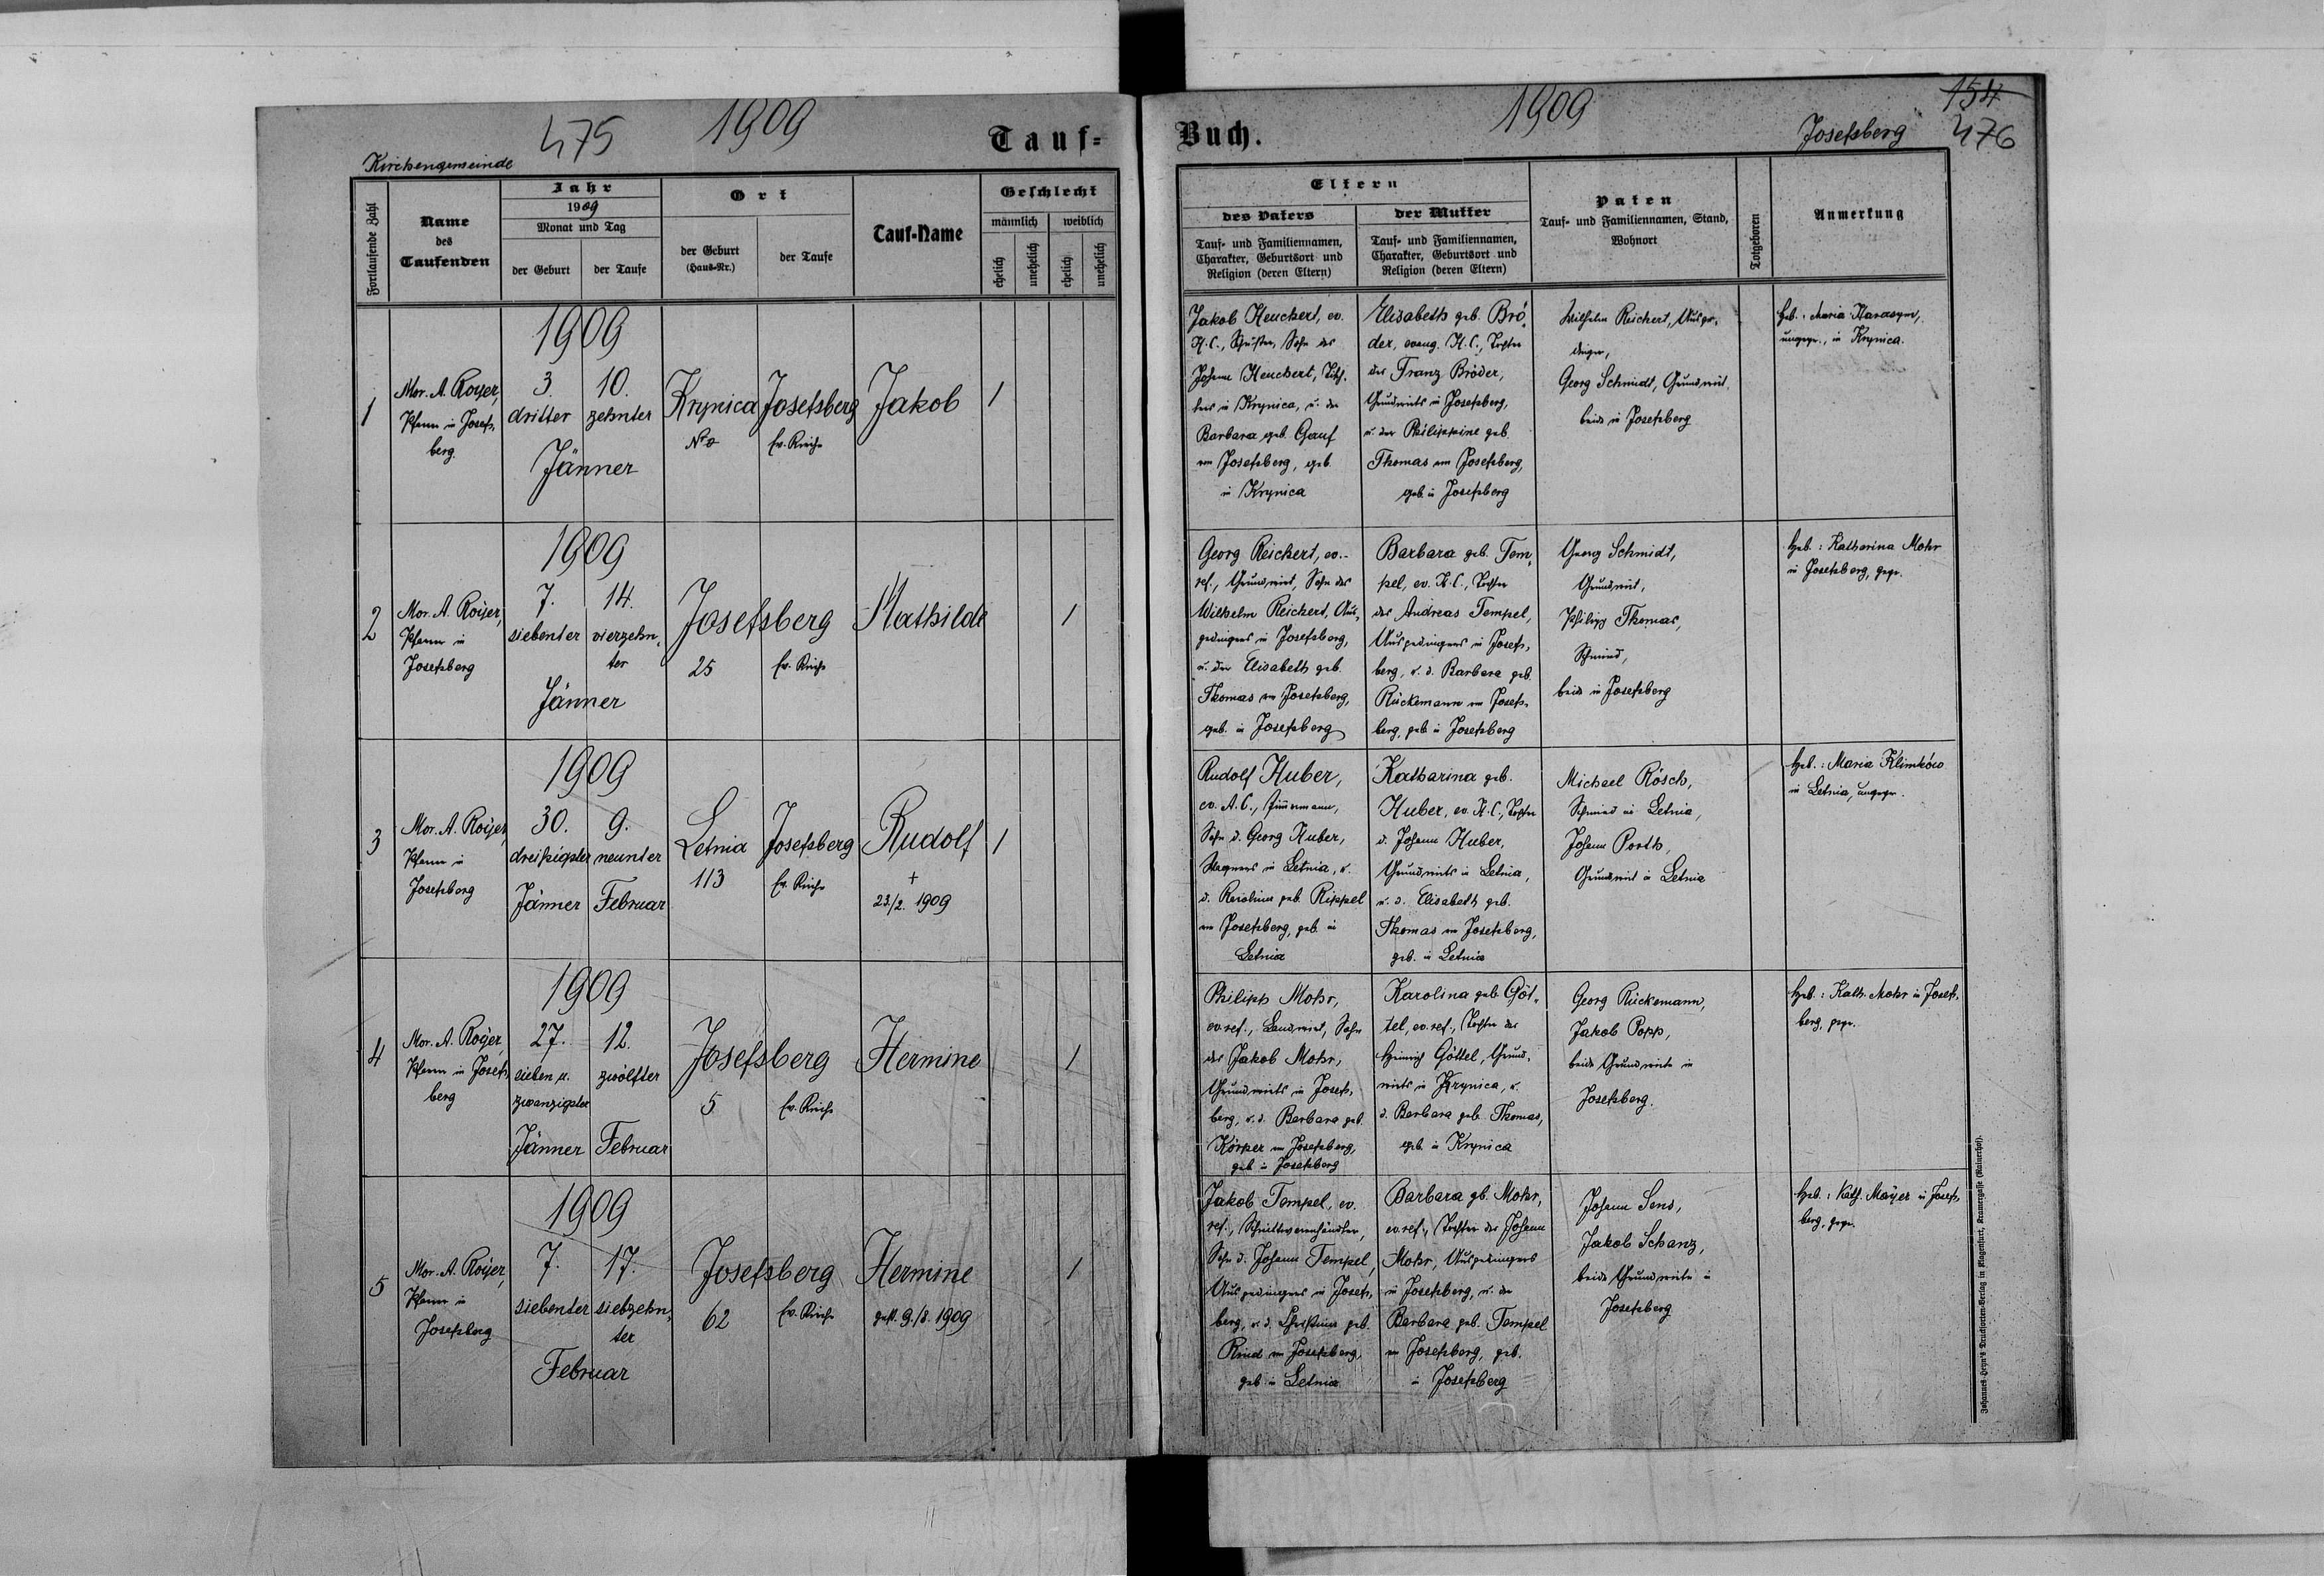 475
1909
Tauf-
Kirchengemeinde
Fortlaufende Zahl
Name
des
Taufenden
Jahr
1909
Monat und Tag
der Geburt
der Taufe
Ort
der Geburt
(Haus-Nr.)
der Taufe
Tauf-Name
Geschlecht
männlich
weiblich
ehelich
unehelich
ehelich
unehelich
1
Mor. A. Royer,
Pfarrer in Josefs-
berg.
1909
3. 10.
dritter zehnter
Jänner
Krynica
Josefsberg
Ev. Kirche
Jakob
1
2
Mor. A. Royer,
Pfarrer in
Josefsberg
1909
7. 14.
siebenter vierzehn-
ter
Jänner
Josefsberg
25 Ev. Kirche
Mathilde
1
3
Mor. A. Royer,
Pfarrer in
Josefsberg
1909
30. 9.
dreißigster neunter
Jänner Februar
Letnia Josefsberg
113 Ev. Kirche
Rudolf
+
23./2. 1909
1
4
Mor. A. Royer,
Pfarrer in Josefs-
berg
1909
27. 12.
sieben u. zwölfter
zwanzigster
Jänner Februar
Josefsberg
5 Ev. Kirche
Hermine
1
5
Mor. A. Royer,
Pfarrer in
Josefsberg
1909
7. 17.
siebenter siebzehn-
ter
Februar
Josefsberg
62 Ev. Kirche
Hermine
gest. 9./8. 1909
1
Buch.
1909
Josefsberg
154
476
Eltern
des Vaters
Tauf- und Familiennamen,
Charakter, Geburtsort und
Religion (deren Eltern)
der Mutter
Tauf- und Familiennamen,
Charakter, Geburtsort und
Religion (deren Eltern)
Paten
Tauf- und Familiennamen, Stand,
Wohnort
Totgeboren
Anmerkung
Jakob Heuchert, ev.
H. C., Schuster, Sohn des
Johann Heuchert, Tisch-
lers in Krynica, u. der
Barbara geb. Gauf
von Josefsberg, geb.
in Krynica
Elisabeth geb. Brö-
der, evang. H. C., Tochter
des Franz Bröder,
Grundwirts in Josefsberg,
u. der Philippine geb.
Thomas von Josefsberg,
geb. in Josefsberg
Wilhelm Reichert, Ausge-
dinger,
Georg Schmidt, Grundwirt,
beide in Josefsberg
Heb.: Maria Harasym,
ungepr., in Krynica.
Georg Reichert, ev.-
ref., Grundwirt, Sohn des
Wilhelm Reichert, Aus-
gedingers in Josefsberg,
u. der Elisabeth geb.
Thomas von Josefsberg,
geb. in Josefsberg
Barbara geb. Tem-
pel, ev. H. C., Tochter
des Andreas Tempel,
Ausgedingers in Josefs-
berg, u. d. Barbara geb.
Rückemann von Josefs-
berg, geb. in Josefsberg
Georg Schmidt,
Grundwirt,
Philipp Thomas,
Schmied,
beide in Josefsberg
Heb.: Katharina Mohr
in Josefsberg, gepr.
Rudolf Huber,
ev. A. C., Zimmermann,
Sohn d. Georg Huber,
Wagners in Letnia, u.
d. Karoline geb. Rippel
von Josefsberg, geb. in
Letnia
Katharina geb.
Huber, ev. H. C., Tochter
d. Johann Huber,
Grundwirts in Letnia,
u. d. Elisabeth geb.
Thomas von Josefsberg,
geb. in Letnia
Michael Rösch,
Schmied in Letnia,
Johann Porth,
Grundwirt in Letnia
Heb.: Maria Klimków
in Letnia, ungepr.
Philipp Mohr,
ev. ref., Landwirt, Sohn
des Jakob Mohr,
Grundwirts in Josefs-
berg, u. d. Barbara geb.
Körper von Josefsberg,
geb. in Josefsberg
Karolina geb. Göt-
tel, ev. ref., Tochter des
Heinrich Göttel, Grund-
wirts in Krynica, u.
d. Barbara geb. Thomas,
geb. in Krynica
Georg Rückemann,
Jakob Popp,
beide Grundwirte in
Josefsberg.
Heb.: Kath. Mohr in Josefs-
berg, gepr.
Jakob Tempel, ev.
ref., Schnittwarenhändler,
Sohn d. Johann Tempel,
Ausgedingers in Josefs-
berg, u. d. Christine geb.
Rind von Josefsberg,
geb. in Letnia
Barbara gb. Mohr,
ev. ref., Tochter des Johann
Mohr, Ausgedingers
in Josefsberg, u. der
Barbara geb. Tempel
von Josefsberg, geb.
in Josefsberg
Johann Sens,
Jakob Schanz,
beide Grundwirte in
Josefsberg
Heb.: Kath. Mayer in Josefs-
berg, gepr.
Johannes Heyn's Drucksorten-Verlag in Klagenfurt, Kramergasse (Rainerhof).